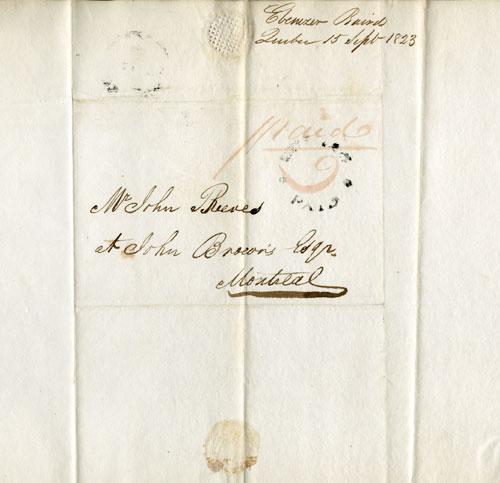 Ebenezer Baird
Quebec 15 Sept 1823
paid
9
PAID
Mr John Reeves
at John Brown's Esqr.
Montreal